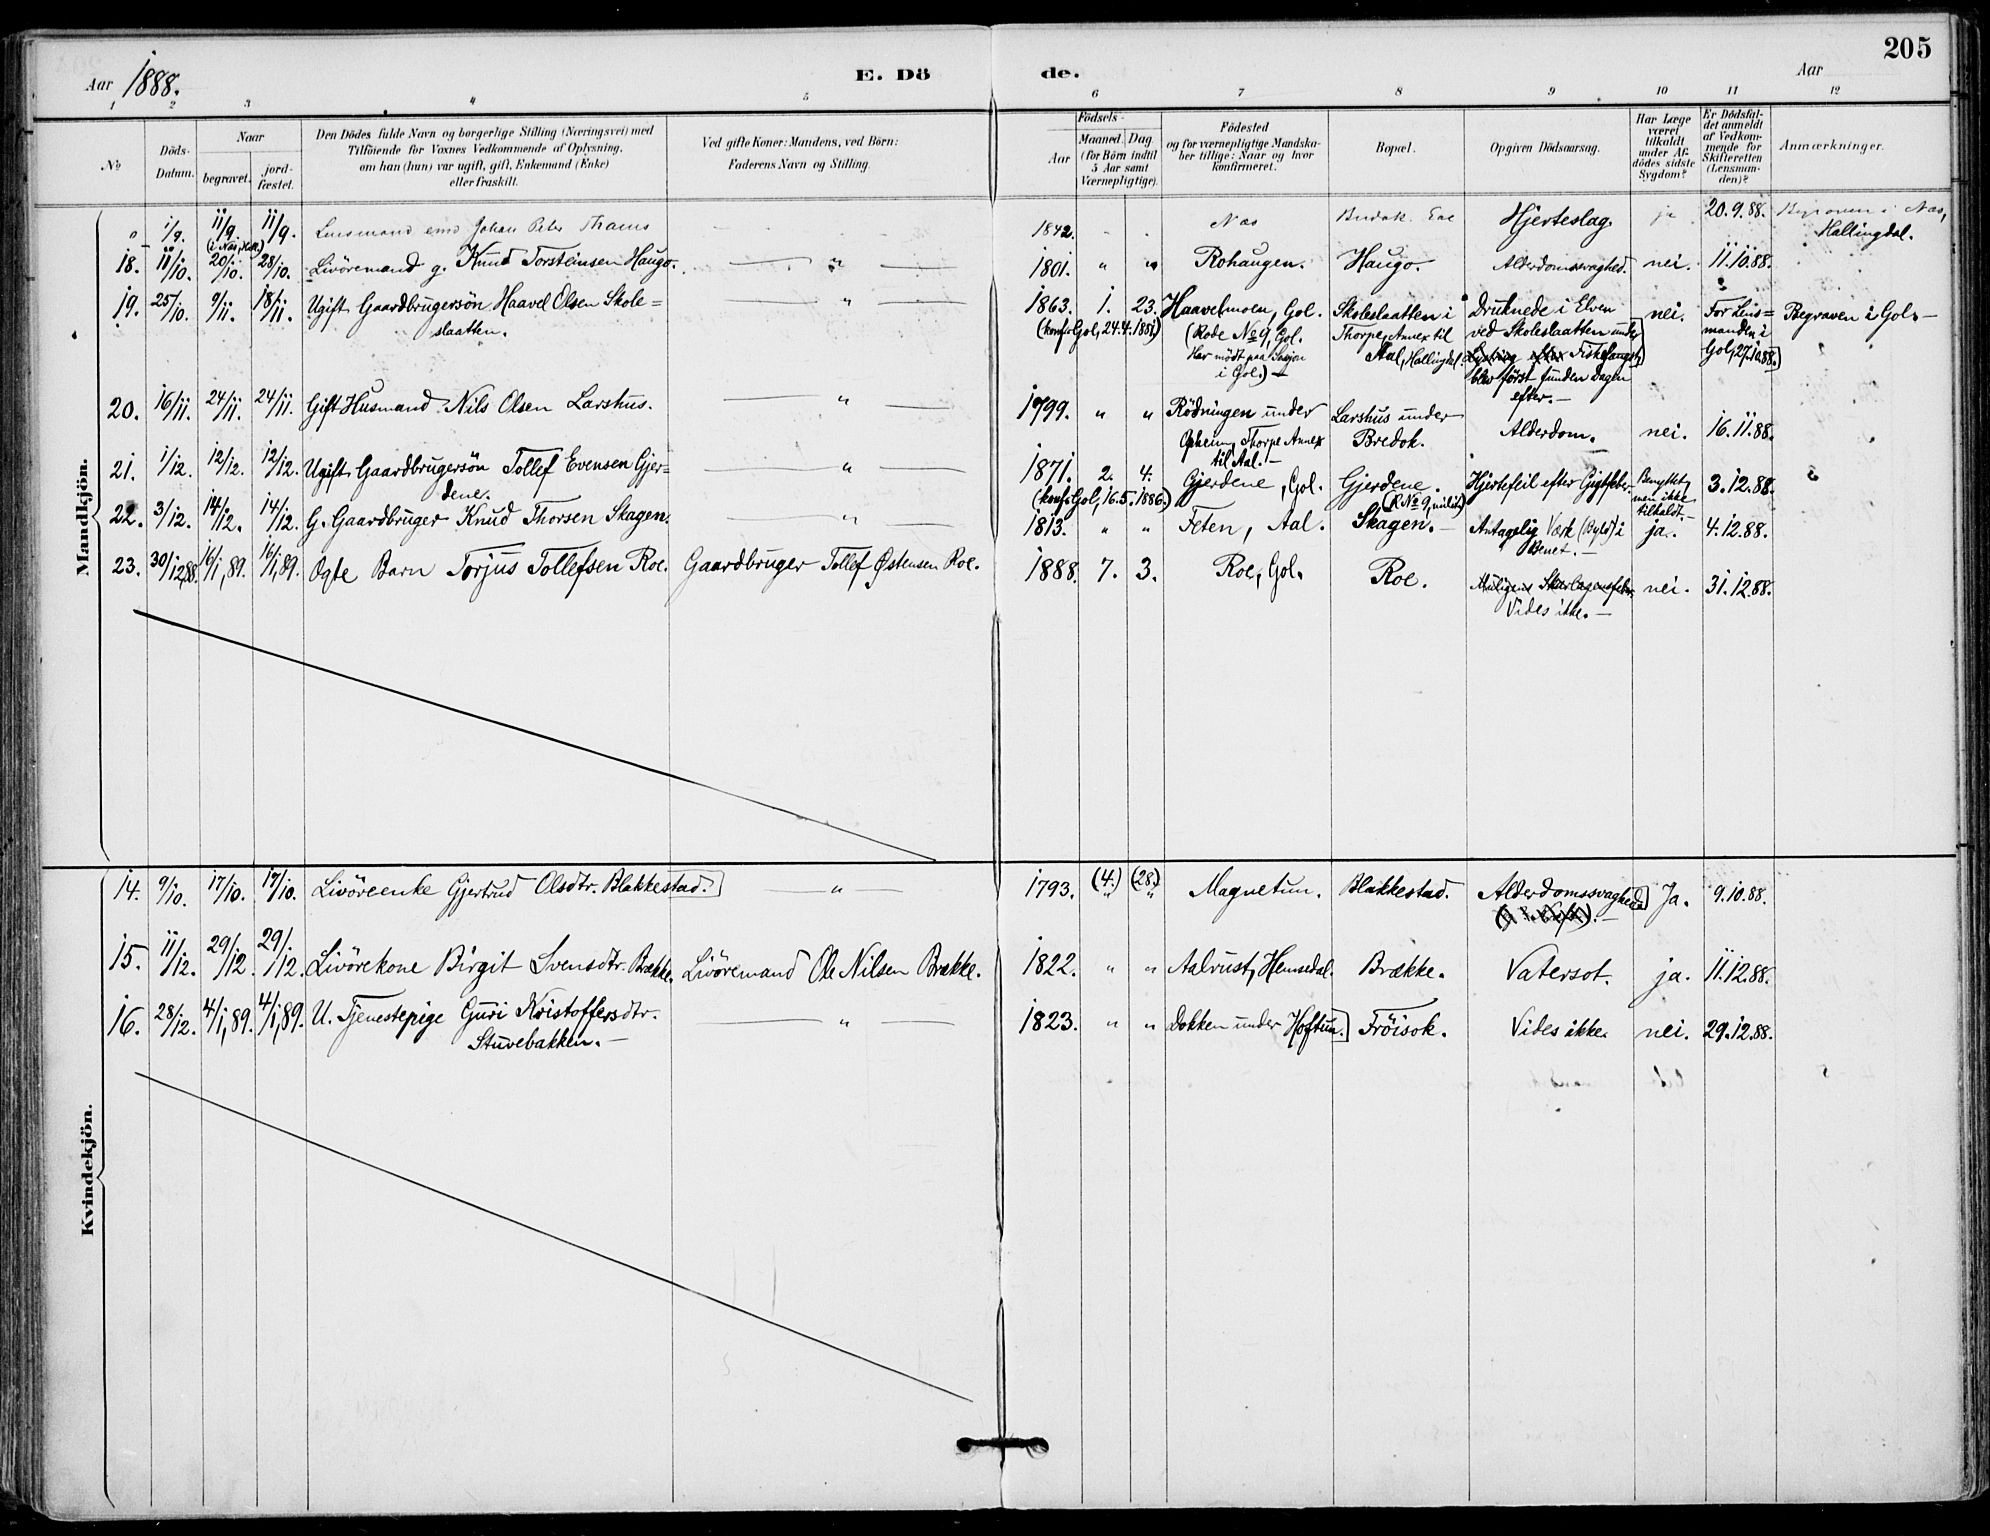 205
Aar 1888. E. Dö de. Aar
1 2 3 4 5 6 7 8 9 10 11 12
No
Döds-Datum.
Naar
begravet.
jord-fæstet.
Den Dödes fulde Navn og borgerlige Stilling (Næringsvei) med
Tilföiende for Voxnes Vedkommende af Oplysning,
om han (hun) var ugift, gift, Enkemand (Enke)
eller fraskilt.
Ved gifte Koner: Mandens, ved Börn:
Faderens Navn og Stilling.
Födsels-
Aar
Maaned. Dag.
(for Börn indtil
5 Aar samt
Værnepligtige).
Födested
og for værnepligtige Mandska-
ber tillige: Naar og hvor
konfirmeret.
Bopæl.
Opgiven Dödsaarsag.
Har Læge
været
tilkaldt
under Af-
dödes sidste
Sygdom?
Er Dödsfal-
det anmeldt
af Vedkom-
mende for
Skifteretten
(Lensman-
den)?
Anmærkninger.
Mandkjön.
1/9. 11/9. 11/9. Lensmand Johan Peter Thams 1842. Næs Hjerteslag. ja 20.9.88. Begraven i Næs,
Hallingdal.
18. 11/10. 20/10. 28/10. Livöremand g. Knud Torsteinsen Haugo. — " — 1801. " " Rohaugen. Haugo. Alderdomssvaghed. nei. 11.10.88.
19. 25/10. 9/11. 18/11. Ugift Gaardbrugersön Haavel Olsen Skole= — " — 1863. 1. 23. Haavelmoen, Gol. Skoleslaatten i Druknede i Elven nei. For Lens= Begraven i Gol. —
slaatten. (konf. Gol, 24.4.1881) (Rode No 9, Gol. Thorpe, Annex til ved Skoleslaatten under manden i
Har mödt paa Sesjon Aal, Hallingdal. Lystring efter Fiskefangst, Gol, 27.10.88.)
i Gol.) — blev först funden Dagen
efter. —
20. 16/11. 24/11. 24/11. Gift Husmand Nils Olsen Larshus. — " — 1799. " " Rödningen under Larshus under Alderdom. nei. 16.11.88.
Opheim, Thorpe Annex Bredok.
til Aal. —
21. 1/12. 12/12. 12/12. Ugift Gaardbrugersön Tollef Evensen Gjer= — " — 1871. 2. 4. Gjerdene, Gol. Gjerdene. Hjertefeil efter Gigtfeber. Benyttet, 3.12.88.
dene. (konf. Gol, 16.5.1886.) men ikke
tilkaldt. —
22. 3/12. 14/12. 14/12. G. Gaardbruger Knud Thorsen Skagen. — " — 1813. " " Feten, Aal. Skagen. — Antagelig Værk (Byld) i ja. 4.12.88.
Benet. —
23. 30/12,88. 16/1,89. 16/1,89. Ægte Barn Torjus Tollefsen Roe. Gaardbruger Tollef Østensen Roe. 1888. 7. 3. Roe, Gol. Roe. Muligens Skarlagensfeber. nei. 31.12.88.
Vides ikke. —
Kvindekjön.
14. 9/10. 17/10. 17/10. Livöreenke Gjertrud Olsdtr. Blakkestad. — " — 1793. (4.) (28.) Magnetun. Blakkestad. Alderdomssvaghed Ja. 9.10.88.
15. 11/12. 29/12. 29/12. Livörekone Birgit Svensdtr. Brække. Livöremand Ole Nilsen Brække. 1822. " " Aalrust, Hemsedal. Brække. Vatersot. ja. 11.12.88.
16. 28/12. 4/1,89. 4/1,89. U. Tjenestepige Guri Kristoffersdtr. — " — 1823. " " Dokken under Hoftun. Fröisok. Vides ikke. nei. 29.12.88.
Stuvebakken. —